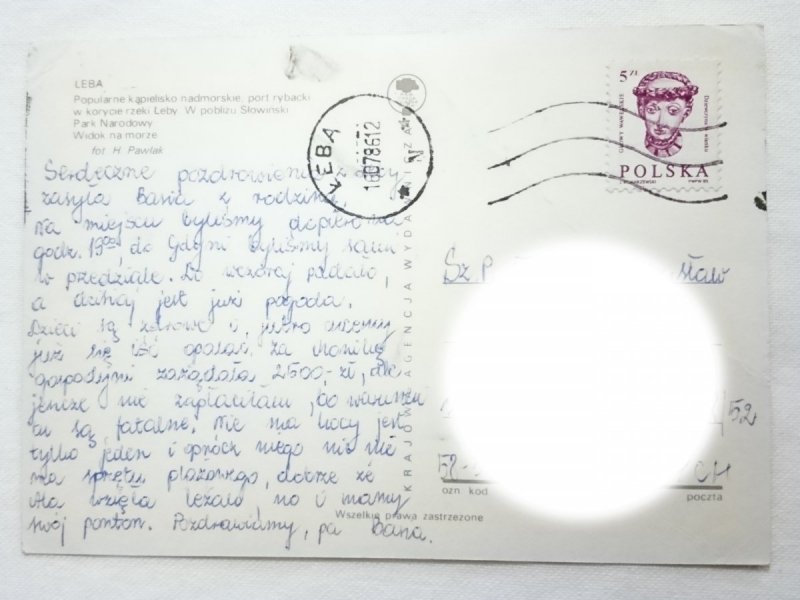 ŁEBA
Popularne kąpielisko nadmorskie, port rybacki
w korycie rzeki Łeby. W pobliżu Słowiński
Park Narodowy
Widok na morze
fot. H. Pawlak
Serdeczne pozdrowienia z Łeby
zasyła Basia z rodziną.
Na miejscu byliśmy dopiero na
godz. 19⁰⁰, do Gdyni byliśmy sami
w przedziale. Do wczoraj padało,
a dzisiaj jest już pogoda.
Dzieci są zdrowe i jutro chcemy
już się iść opalać. Za
gospodyni zażądała 2500,- zł, ale
jeszcze nie zapłaciłam, bo warunki
są fatalne. Nie ma kocy jest
tylko jeden i oprócz niego nic nie
ma sprzętu plażowego, dobrze że
Ala wzięła leżak no i mamy
swój ponton. Pozdrawiamy, pa Basia.
ŁEBA
16078612
N
KRAJOWA AGENCJA WYDAWNICZA
5 ZŁ
GŁOWY WAWELSKIE
Dziewczyna w wianku
POLSKA
PWPW 85
Sz. P
sław
52
58-
CH
ozn. kod
poczta
Wszelkie prawa zastrzeżone